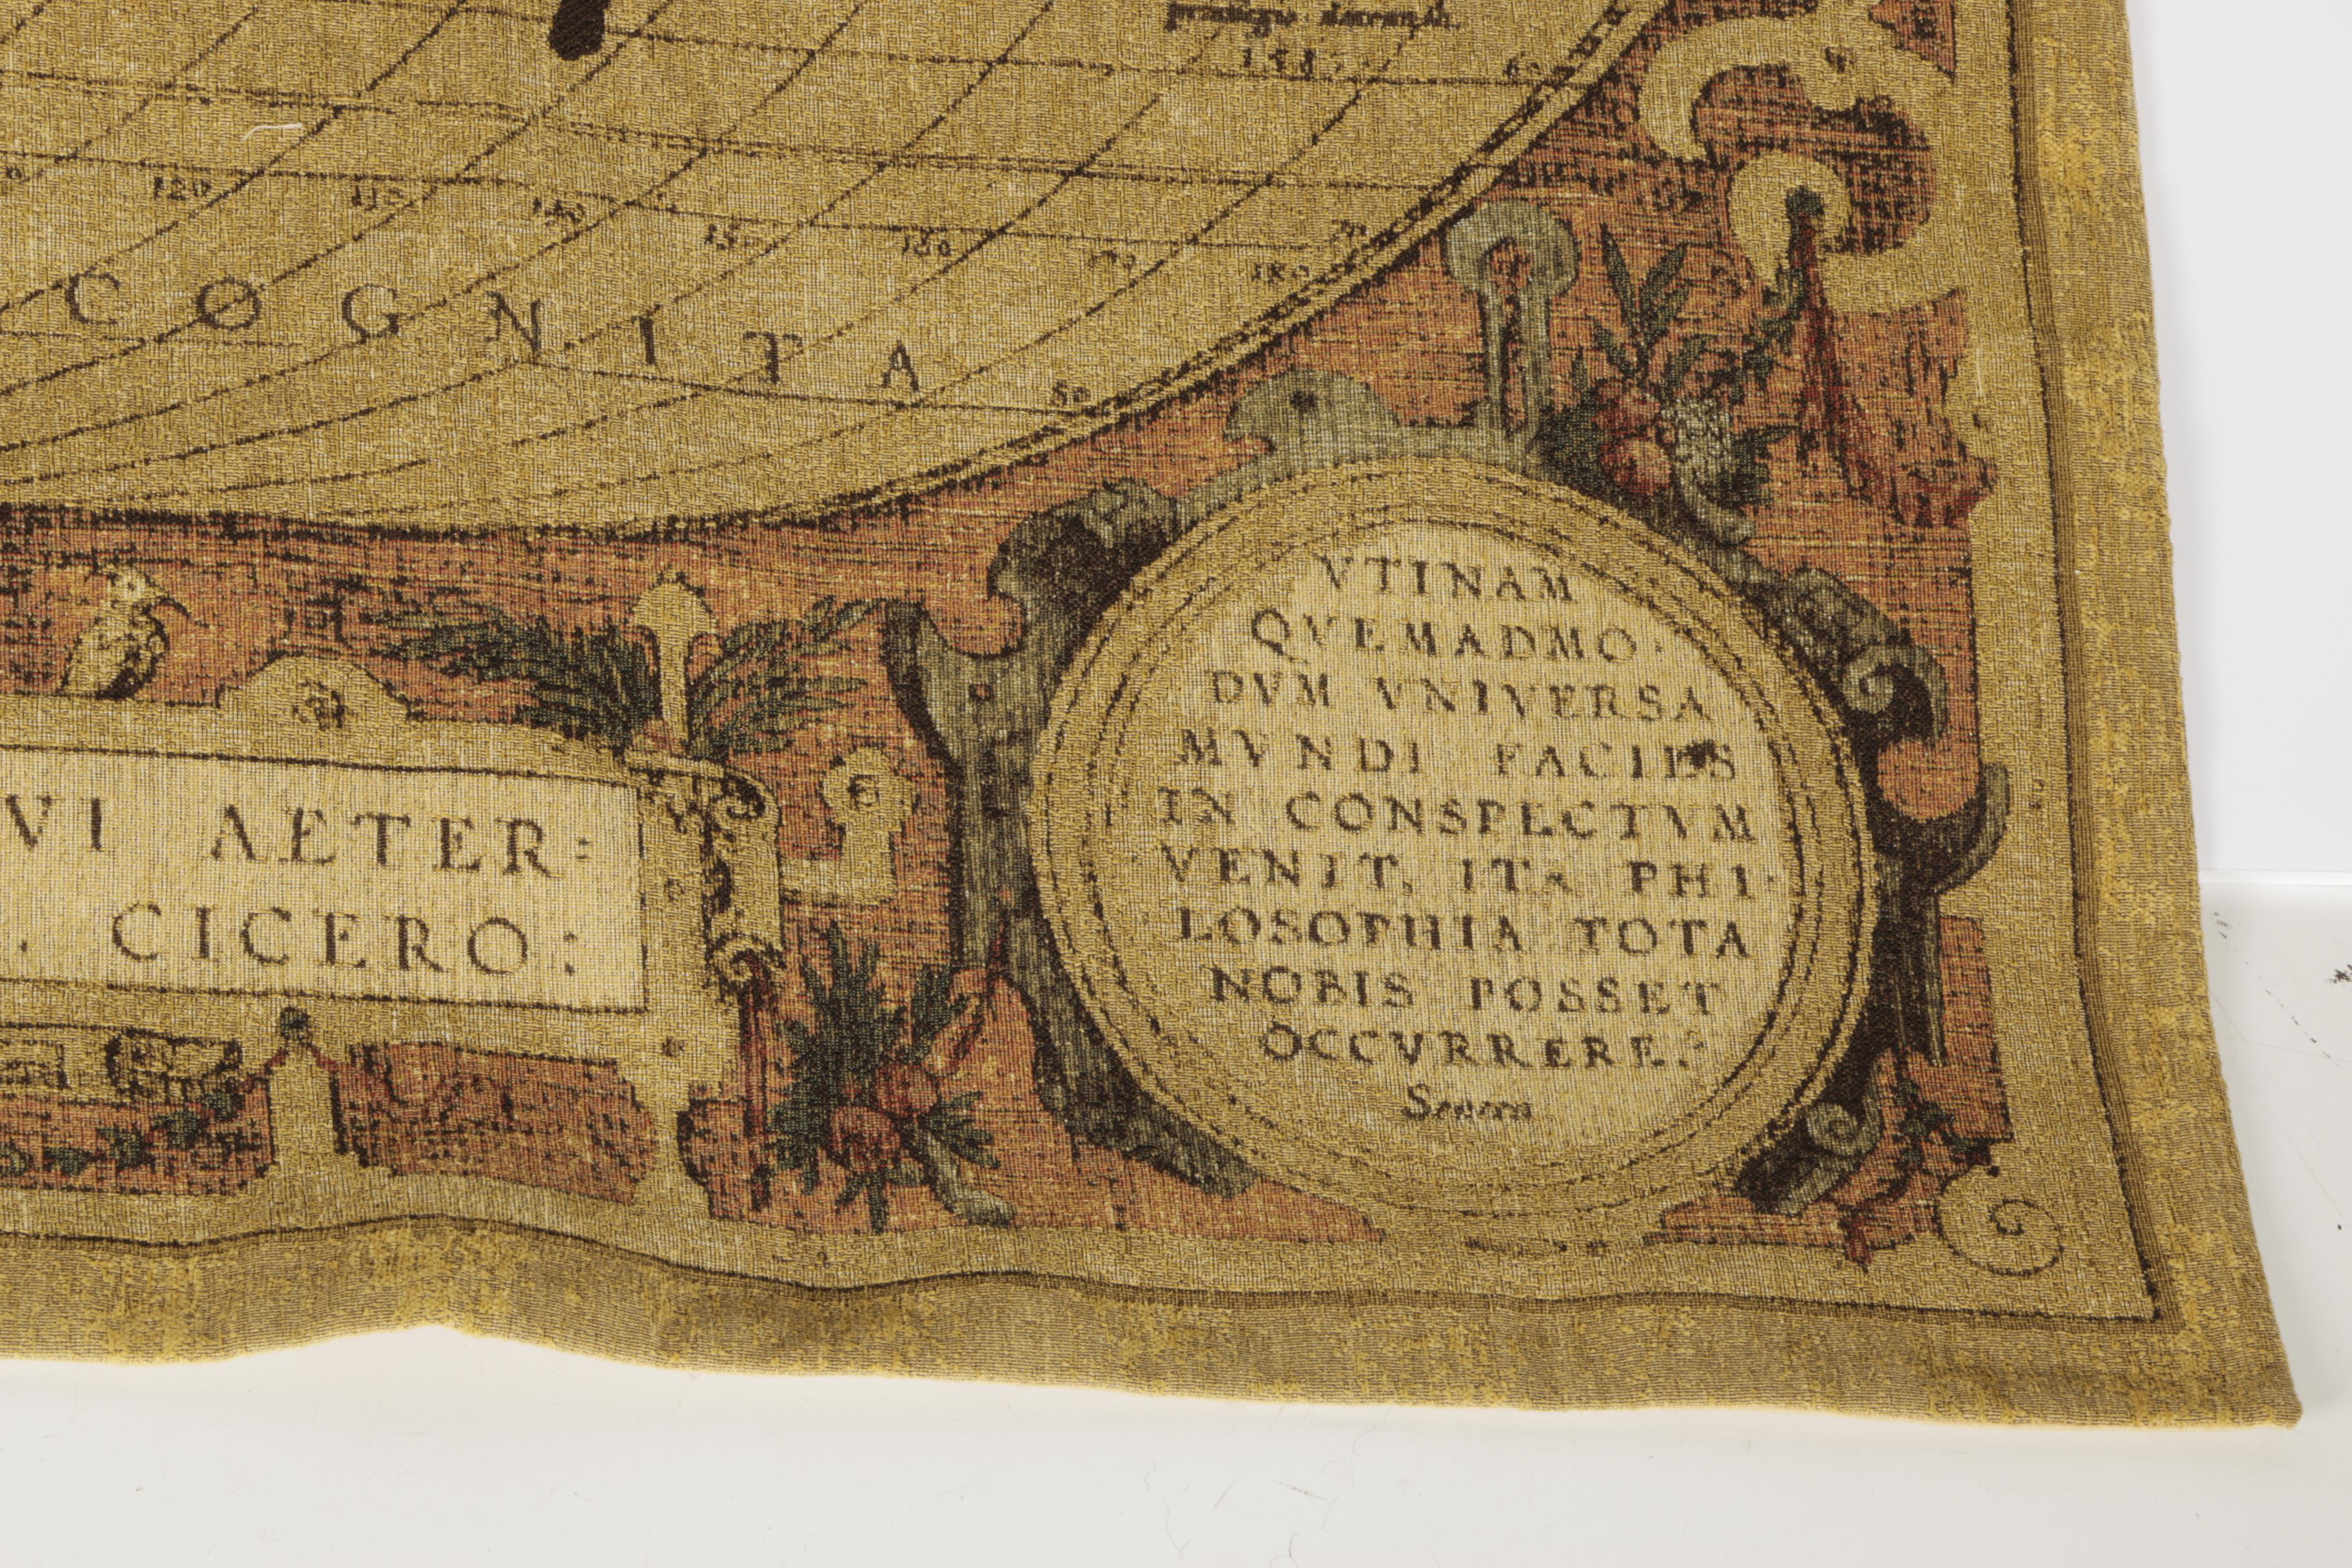 1587
60
120
150
160
180
COGNITA
80
VI AETER:
CICERO:
VTINAM
QVEMADMO-
DVM VNIVERSA
MVNDI FACIES
IN CONSPECTVM
VENIT, ITA PHI-
LOSOPHIA TOTA
NOBIS POSSET
OCCVRRERE.
Seneca